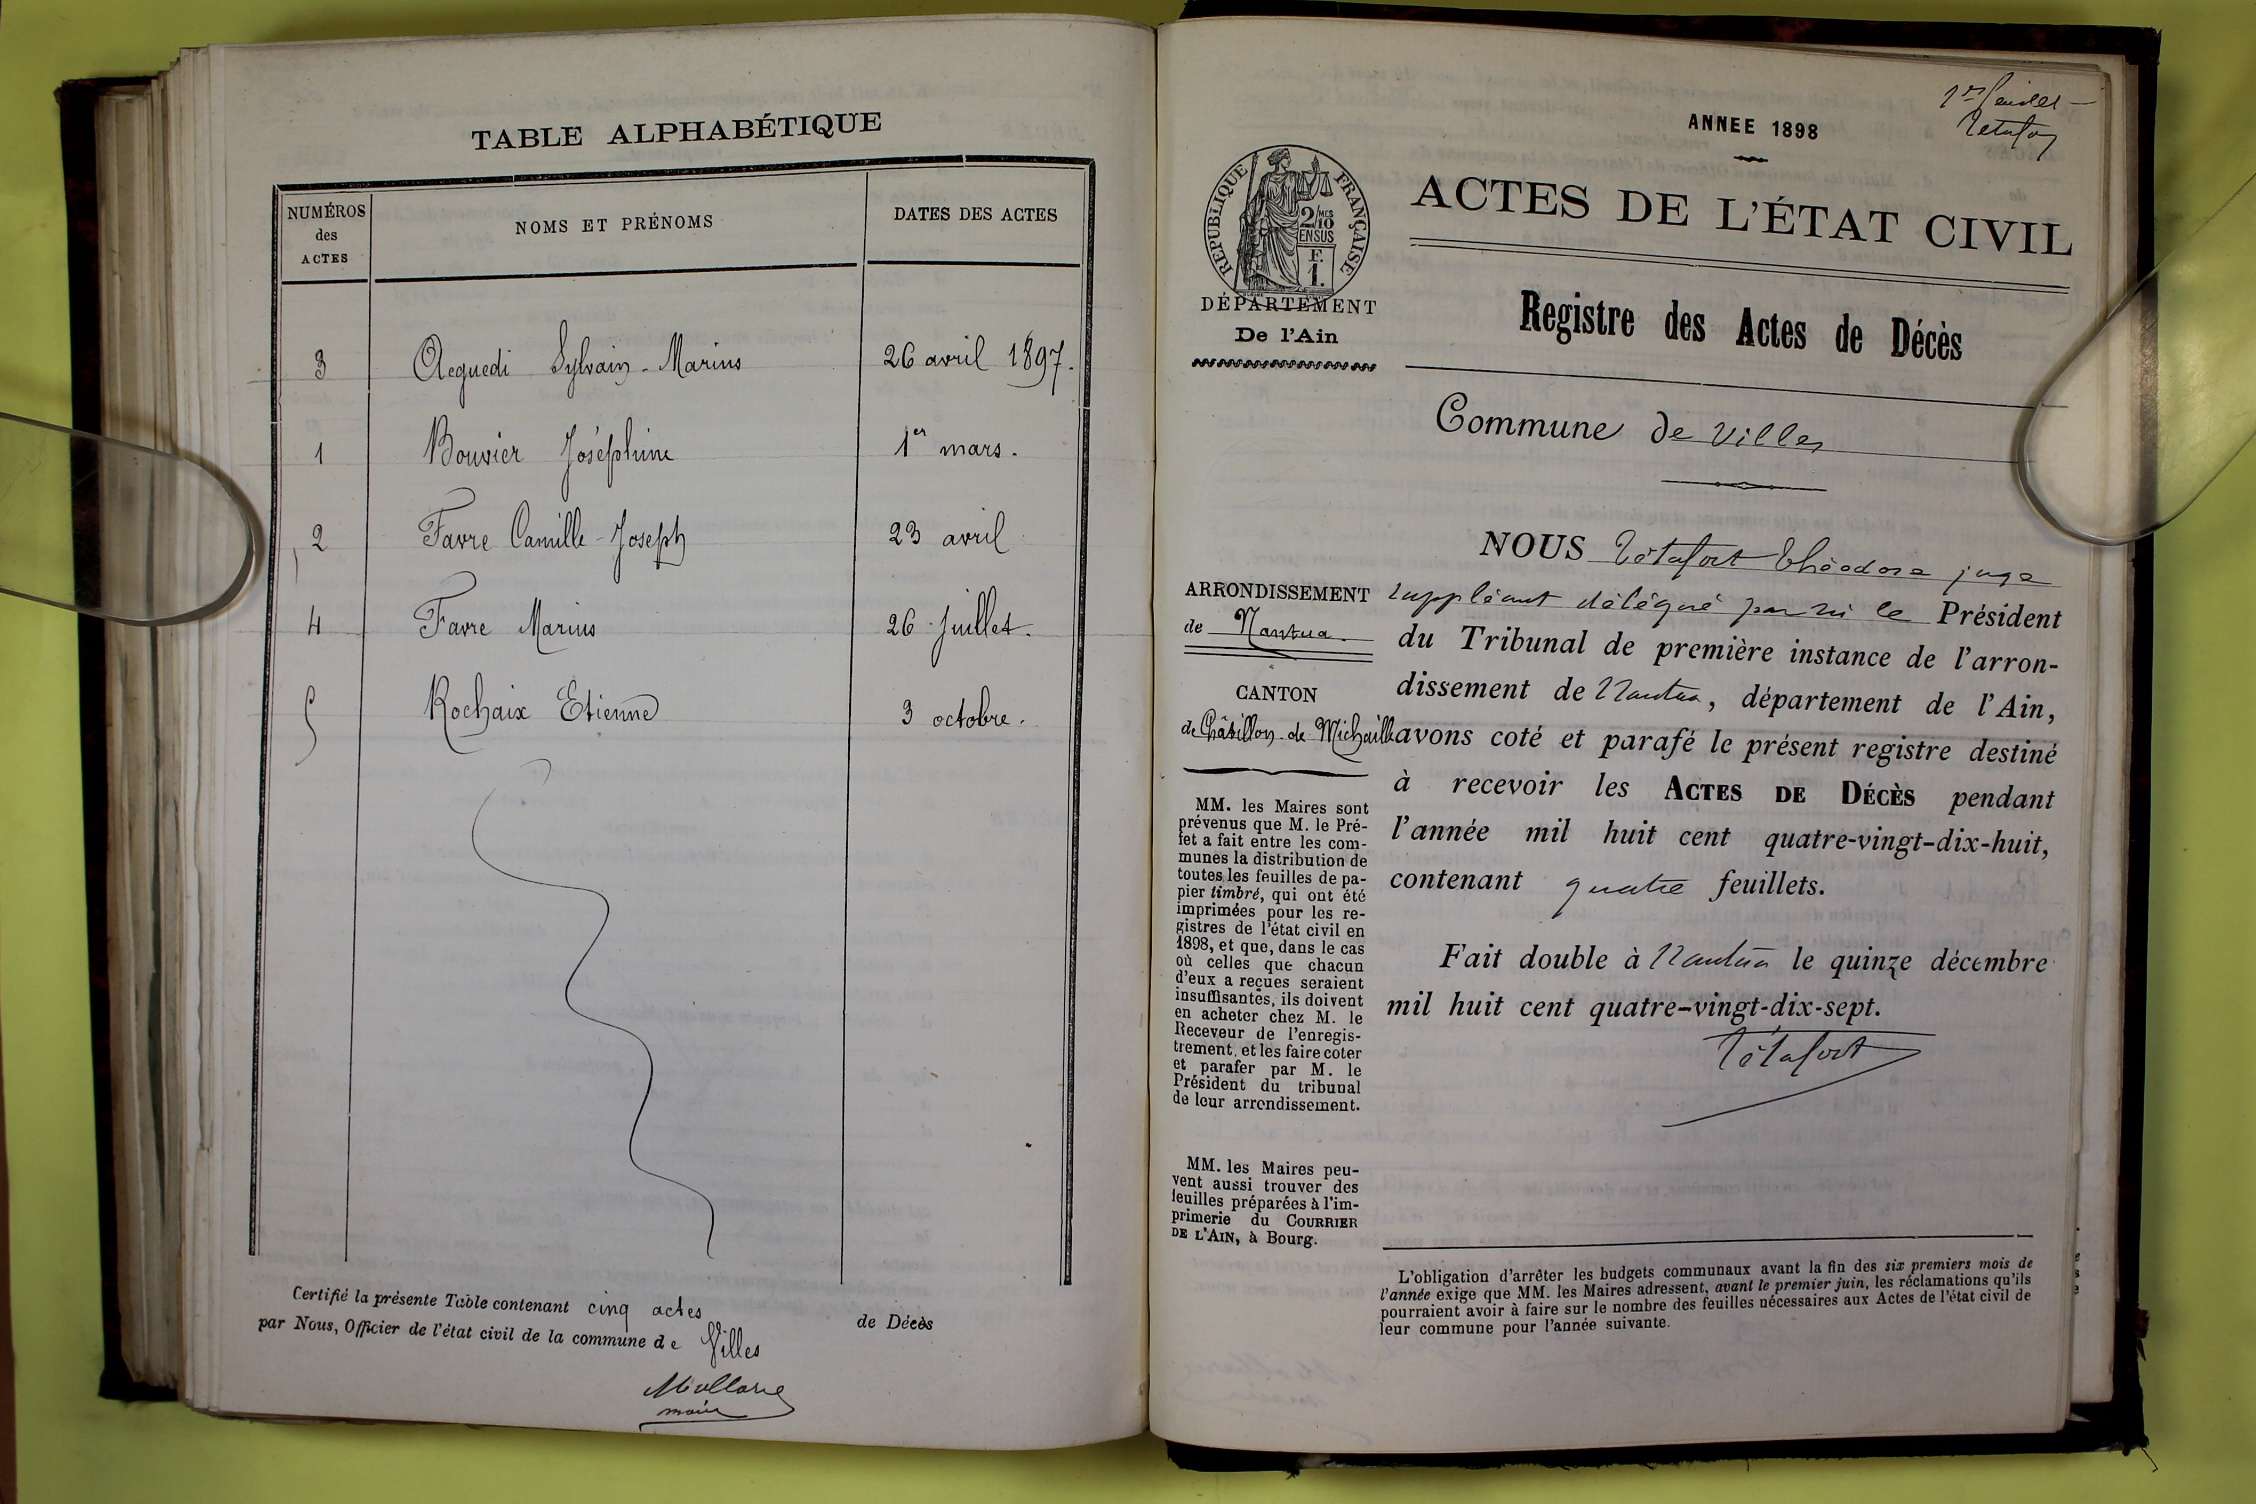 TABLE ALPHABÉTIQUE
NUMÉROS des ACTES
NOMS ET PRÉNOMS
DATES DES ACTES
3 Acquedi Sylvain-Marius 26 avril 1897.
1 Bouvier Joséphine 1er mars.
2 Favre Camille-Joseph 23 avril
4 Favre Marius 26 juillet.
5 Rochaix Etienne 3 octobre.
Certifié la présente Table contenant cinq actes de Décès
par Nous, Officier de l'état civil de la commune de Villes
maire
1er feuillet
Tétafort
ANNÉE 1898
RÉPUBLIQUE FRANÇAISE
2/10 MES
EN SUS
F.
1.
ACTES DE L'ÉTAT CIVIL
DÉPARTEMENT
De l'Ain
Registre des Actes de Décès
Commune de Villes
ARRONDISSEMENT
de Nantua.
CANTON
de Châtillon-de-Michaille
MM. les Maires sont
prévenus que M. le Pré-
fet a fait entre les com-
munes la distribution de
toutes les feuilles de pa-
pier timbré, qui ont été
imprimées pour les re-
gistres de l'état civil en
1898, et que, dans le cas
où celles que chacun
d'eux a reçues seraient
insuffisantes, ils doivent
en acheter chez M. le
Receveur de l'enregis-
trement, et les faire coter
et parafer par M. le
Président du tribunal
de leur arrondissement.
MM. les Maires peu-
vent aussi trouver des
feuilles préparées à l'im-
primerie du COURRIER
DE L'AIN, à Bourg.
NOUS Tétafort Théodore juge
suppléant délégué par ni le Président
du Tribunal de première instance de l'arron-
dissement de Nantua, département de l'Ain,
avons coté et parafé le présent registre destiné
à recevoir les ACTES DE DÉCÈS pendant
l'année mil huit cent quatre-vingt-dix-huit,
contenant quatre feuillets.
Fait double à Nantua le quinze décembre
mil huit cent quatre-vingt-dix-sept.
Tétafort
L'obligation d'arrêter les budgets communaux avant la fin des six premiers mois de
l'année exige que MM. les Maires adressent, avant le premier juin, les réclamations qu'ils
pourraient avoir à faire sur le nombre des feuilles nécessaires aux Actes de l'état civil de
leur commune pour l'année suivante.